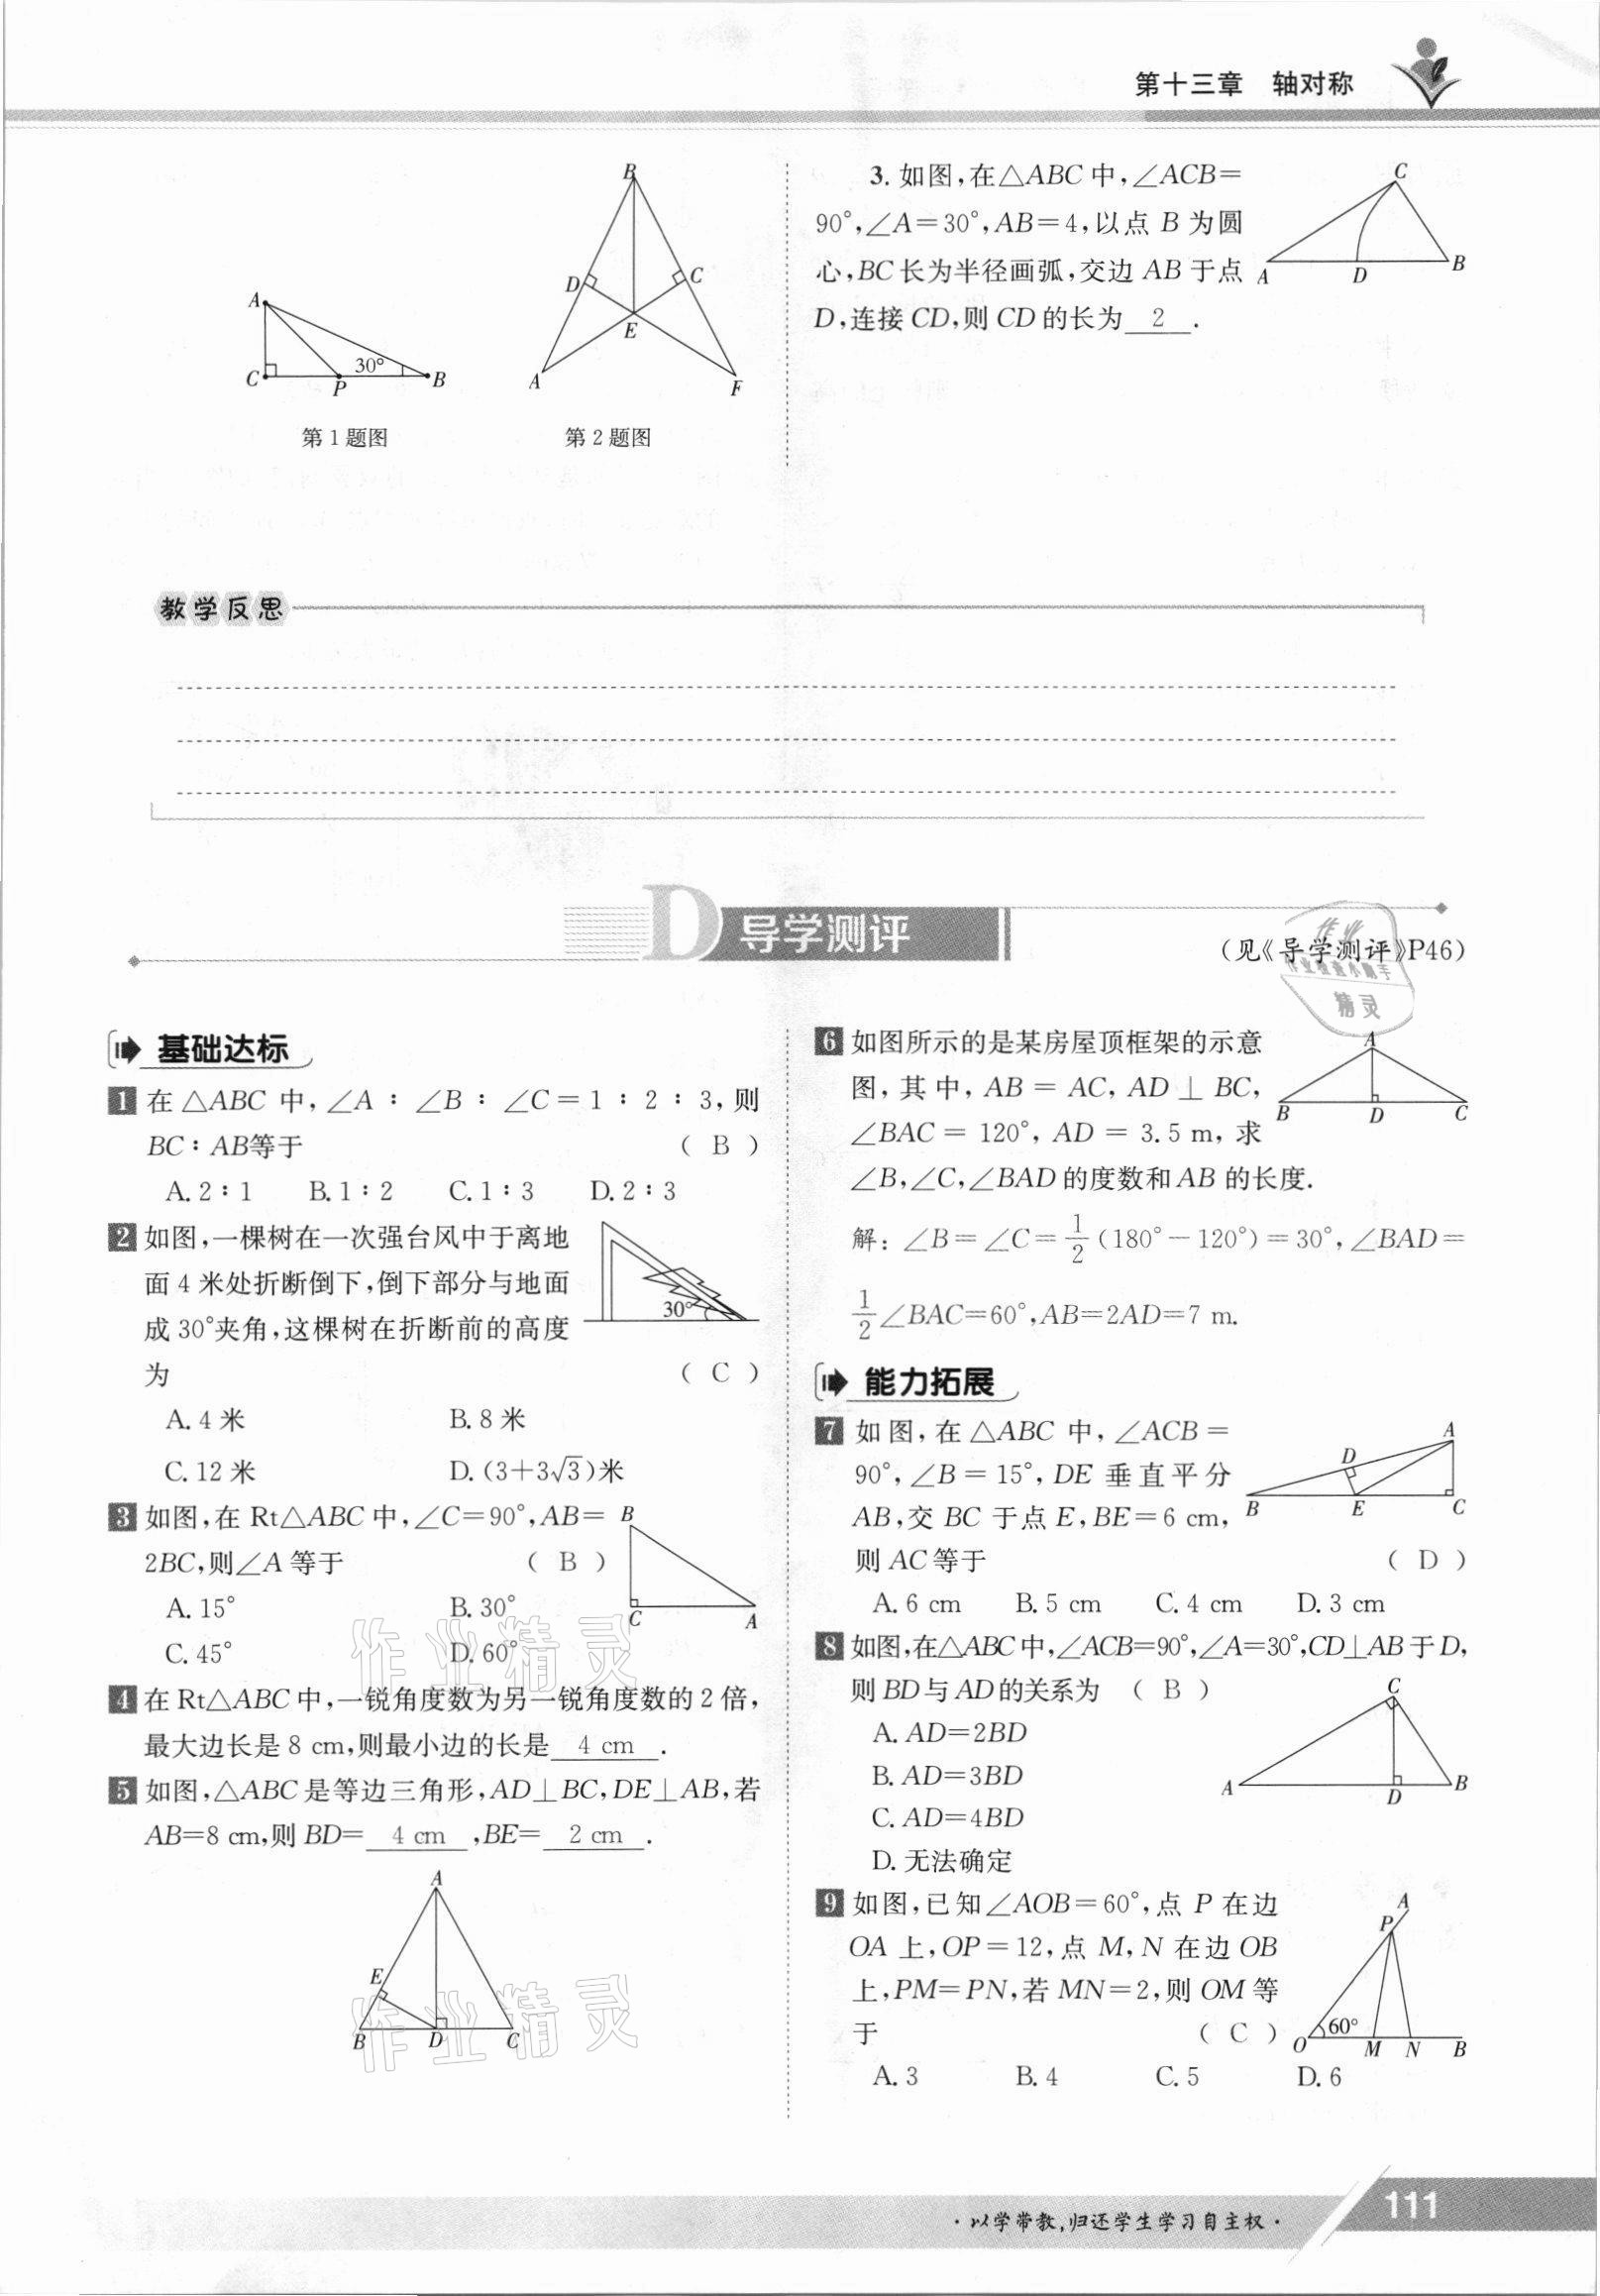 第十三章 轴对称
B
D
C
E
A
F
A
C
P
30°
B
第1题图
第2题图
3. 如图,在△ABC中,∠ACB=
90°,∠A=30°,AB=4,以点 B 为圆
心,BC长为半径画弧,交边 AB 于点
D,连接CD,则CD的长为 2 .
C
A
D
B
教学反思
D 导学测评
(见《导学测评》P46)
作业
作业检查小助手
精灵
基础达标
1 在△ABC 中,∠A∶∠B∶∠C=1∶2∶3,则
BC∶AB等于 ( B )
A. 2∶1 B. 1∶2 C. 1∶3 D. 2∶3
2 如图,一棵树在一次强台风中于离地
面4米处折断倒下,倒下部分与地面
成30°夹角,这棵树在折断前的高度
为 ( C )
30°
A. 4 米 B. 8 米
C. 12 米 D. (3+3√3)米
3 如图,在 Rt△ABC中,∠C=90°,AB=
2BC,则∠A 等于 ( B )
A. 15° B. 30°
C. 45° D. 60°
B
C
A
4 在Rt△ABC中,一锐角度数为另一锐角度数的2倍,
最大边长是8 cm,则最小边的长是 4 cm .
5 如图,△ABC是等边三角形,AD⊥BC,DE⊥AB,若
AB=8 cm,则 BD= 4 cm ,BE= 2 cm .
A
E
B
D
C
作业精灵
作业精灵
6 如图所示的是某房屋顶框架的示意
图,其中,AB=AC,AD⊥BC,
∠BAC=120°,AD=3.5 m,求
∠B,∠C,∠BAD的度数和AB的长度.
A
B
D
C
解:∠B=∠C=1/2(180°-120°)=30°,∠BAD=
1/2∠BAC=60°,AB=2AD=7 m.
能力拓展
7 如图,在△ABC 中,∠ACB=
90°,∠B=15°,DE 垂直平分
AB,交 BC 于点E,BE=6 cm,
则 AC等于 ( D )
A. 6 cm B. 5 cm C. 4 cm D. 3 cm
A
D
B
E
C
8 如图,在△ABC中,∠ACB=90°,∠A=30°,CD⊥AB于D,
则BD与AD的关系为 ( B )
A. AD=2BD
B. AD=3BD
C. AD=4BD
D. 无法确定
C
A
D
B
9 如图,已知∠AOB=60°,点 P 在边
OA 上,OP=12,点 M,N 在边OB
上,PM=PN,若 MN=2,则 OM 等
于 ( C )
A. 3 B. 4 C. 5 D. 6
A
P
O
60°
M
N
B
·以学带教,归还学生学习自主权·
111